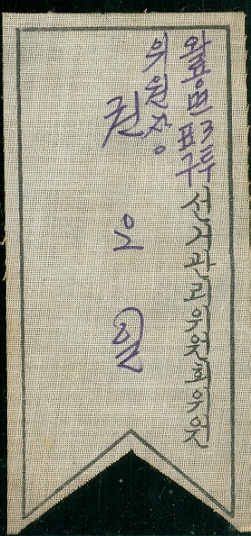 월롱면 3투표구 선거관리위원회위원
위원장
권오일